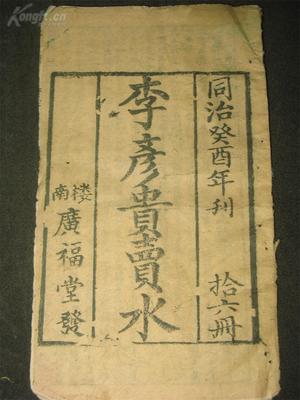 同治癸酉年刊 拾六冊
李彥貴賣水
南楼
廣福堂發
Kongfz.cn